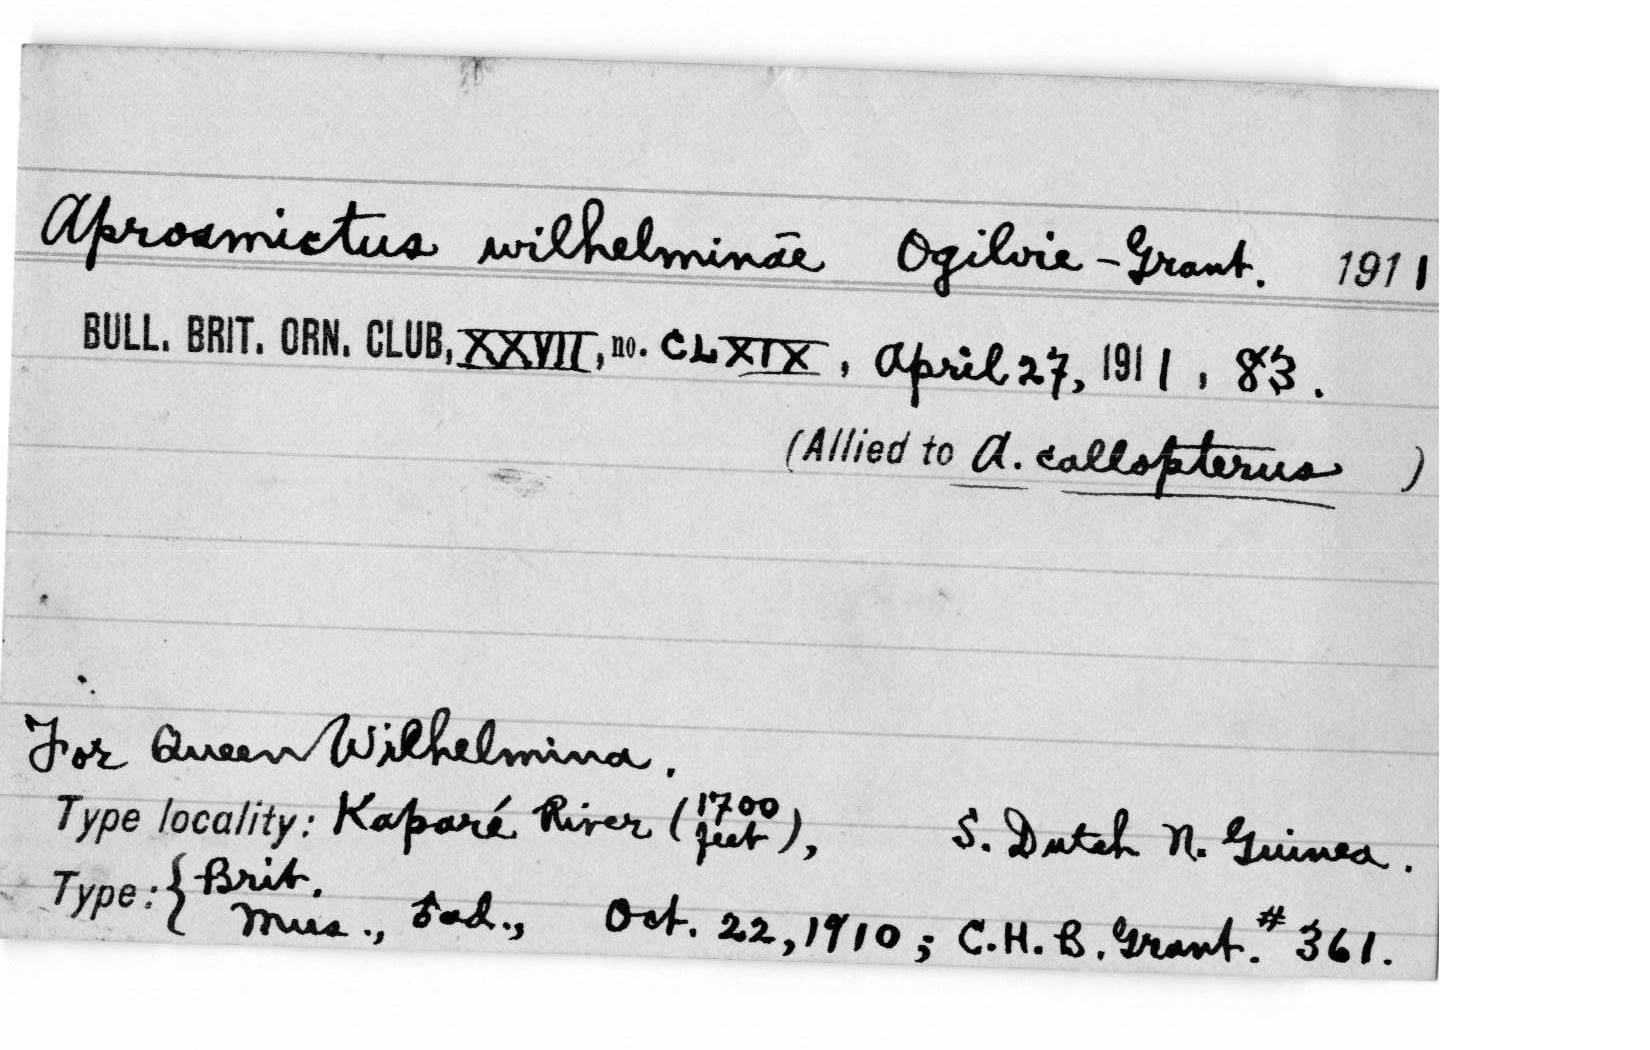 Aprosmictus wilhelminae Ogilvie-Grant. 1911
BULL. BRIT. ORN. CLUB, XXVII, no. CLXIX, April 27, 1911, 83.
(Allied to A. callopterus)
For Queen Wilhelmina.
Type locality: Kaparé River (1700 feet), S. Dutch N. Guinea.
Type: { Brit. Mus., ad., Oct. 22, 1910; C.H.B. Grant. # 361.